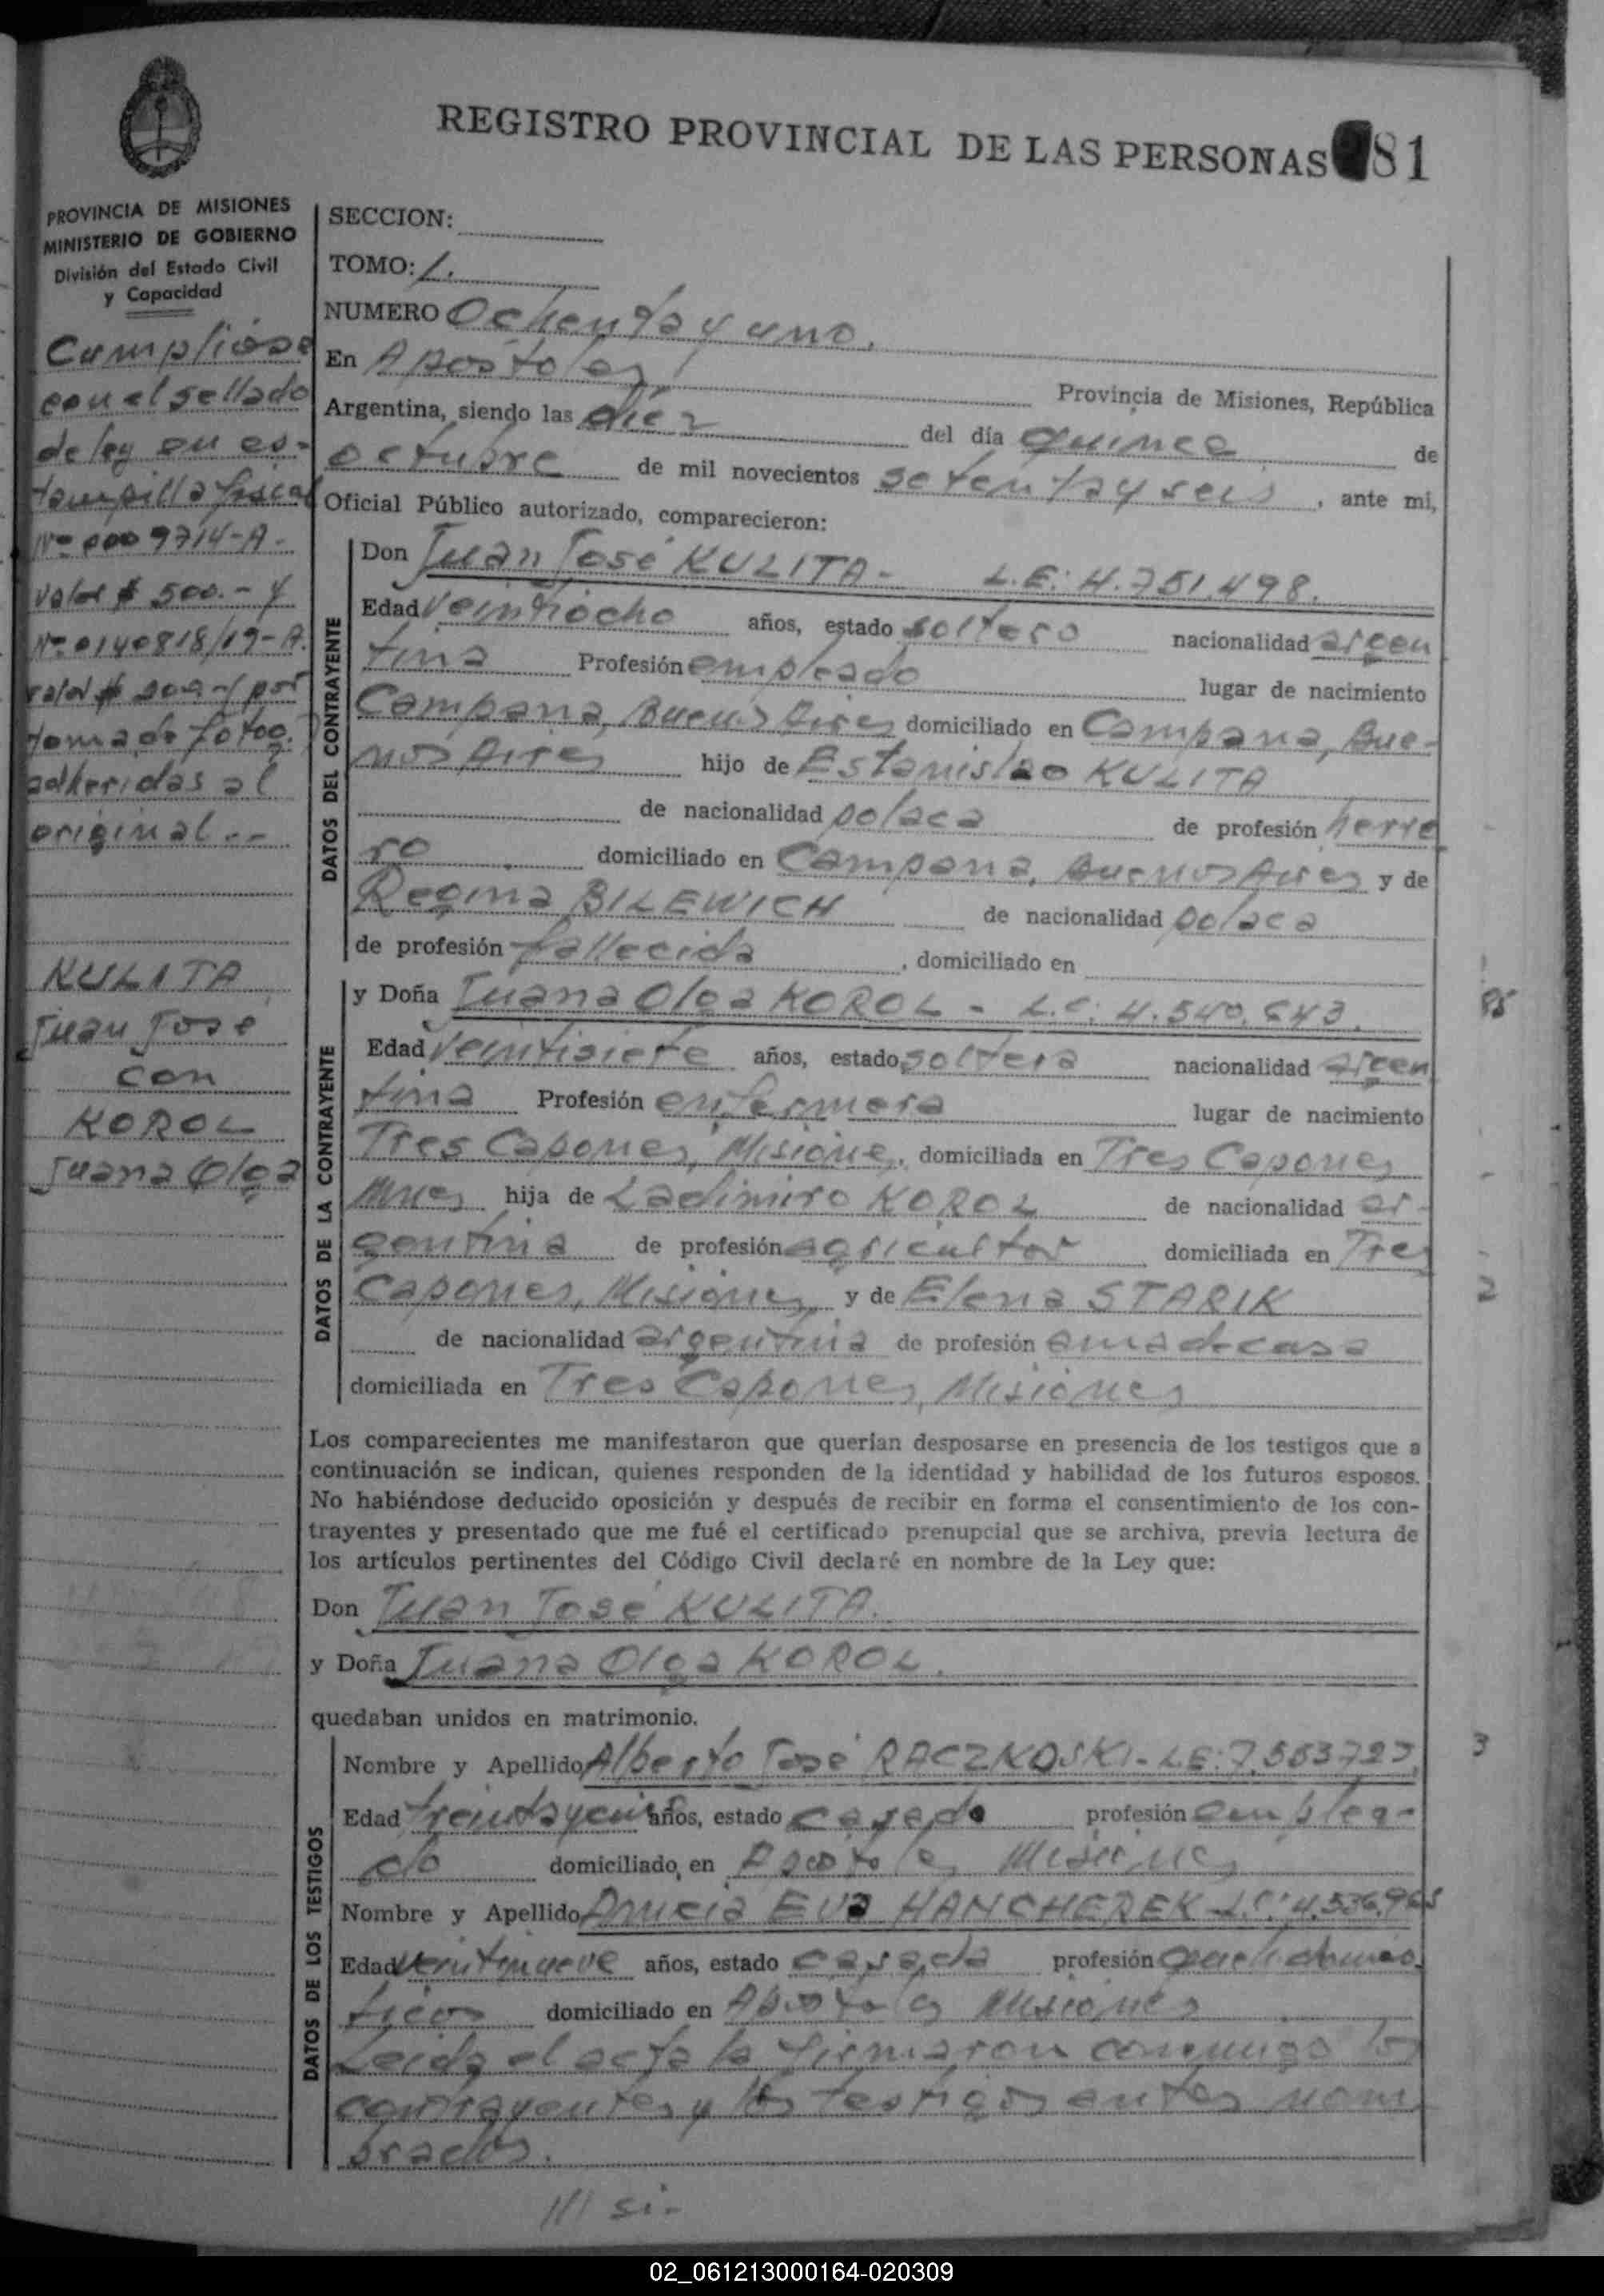 REGISTRO PROVINCIAL DE LAS PERSONAS 81
PROVINCIA DE MISIONES
MINISTERIO DE GOBIERNO
División del Estado Civil
y Capacidad
Cumplióse
con el sellado
de ley en es-
tampilla fiscal
Nº 0009714-A-
valor $ 500.- y
Nº 0140818/19-A.
valor $ 200-/ por
toma de fotog.
adheridas al
original.--
KULITA
Juan José
con
KOROL
Juana Olga
SECCION:
TOMO: 1.
NUMERO Ochenta y uno.
En Apóstoles, Provincia de Misiones, República
Argentina, siendo las diez del día quince de
octubre de mil novecientos setenta y seis, ante mi,
Oficial Público autorizado, comparecieron:
DATOS DEL CONTRAYENTE
Don Juan José KULITA- L.E: 4.751.498.
Edad veintiocho años, estado soltero nacionalidad argen
tina Profesión empleado lugar de nacimiento
Campana, Buenos Aires domiciliado en Campana, Bue-
nos Aires hijo de Estanislao KULITA
de nacionalidad polaca de profesión herre
ro domiciliado en Campana, Buenos Aires y de
Regina BILEWICH de nacionalidad polaca
de profesión fallecida, domiciliado en
DATOS DE LA CONTRAYENTE
y Doña Juana Olga KOROL - L.C: 4.540.643.
Edad veintisiete años, estado soltera nacionalidad argen
tina Profesión enfermera lugar de nacimiento
Tres Capones, Misiones, domiciliada en Tres Capones
Mnes hija de Ladimiro KOROL de nacionalidad ar-
gentina de profesión agricultor domiciliada en Tres
Capones, Misiones, y de Elena STARIK
de nacionalidad argentina de profesión ama de casa
domiciliada en Tres Capones, Misiones
Los comparecientes me manifestaron que querían desposarse en presencia de los testigos que a
continuación se indican, quienes responden de la identidad y habilidad de los futuros esposos.
No habiéndose deducido oposición y después de recibir en forma el consentimiento de los con-
trayentes y presentado que me fué el certificado prenupcial que se archiva, previa lectura de
los artículos pertinentes del Código Civil declaré en nombre de la Ley que:
Don Juan José KULITA.
y Doña Juana Olga KOROL.
quedaban unidos en matrimonio.
DATOS DE LOS TESTIGOS
Nombre y Apellido Alberto José RACZKOSKI- L.E: 7.553723.
Edad años, estado casado profesión emplea-
do domiciliado en Apóstoles Misiones
Nombre y Apellido EVA HANCHEREK L.C: 4.536.965
Edad veintinueve años, estado casada profesión
ticos domiciliado en Apóstoles Misiones
Leida el acta la firmaron conmigo los
contrayentes y los testigos antes nom
brados.
/// si-
85
2
3
02_061213000164-020309